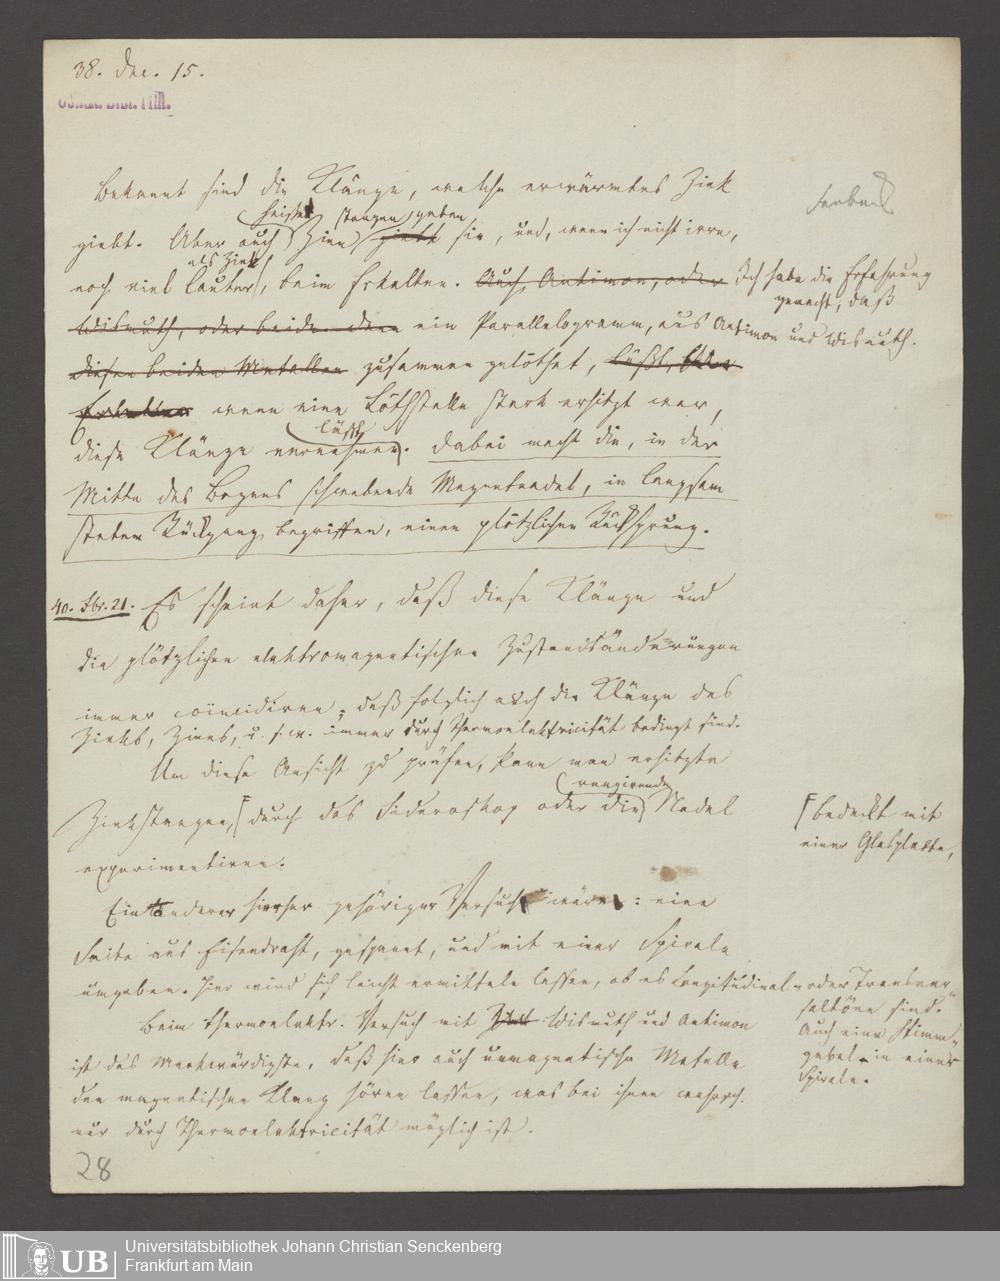 38. Dec. 15.
Bekannt sind die Klänge, welche erwärmtes Zink
Seebeck
heiße stangen geben,
giebt. Aber auch Zinn giebt sie, und, wenn ich nicht irre,
als Zink
noch viel lauter, beim Erkalten. Auch Antimon, oder Ich habe die Erfahrung
gemacht, daß
Wismuth, oder beide. Denn ein Parallelogramm, aus Antimon und Wismuth.
diesen beiden Metallen zusammen gelöthet, läßt, beim
Erkalten wenn eine Löthstelle stark erhitzt war,
läßt
diese Klänge vernehmen. Dabei macht die, in der
Mitte des Bogens schwebende Magnetnadel, in langsam
stetem Rückgang begriffen, einen plötzlichen Rücksprung.
40. Fbr. 21. Es scheint daher, daß diese Klänge und
die plötzlichen elektromagnetischen Zustandsänderungen
immer coïncidiren; daß folglich auch die Klänge des
Zinks, Zinns, u. s. w. immer durch Thermoelektricität bedingt sind.
Um diese Ansicht zu prüfen, kann man erhitzte
reagirende
Zinkstangen, durch das Sideroskop oder die Nadel
bedeckt mit
einer Glasplatte,
experimentiren.
Ein anderer hierher gehöriger Versuch wäre: eine
Saite aus Eisendraht, gespannt, und mit einer Spirale
umgeben. Hier wird sich leicht ermitteln lassen, ob es Longitudinal- oder Transver-
saltöne sind.
Auch eine Stimm-
gabel in einer
Spirale.
Beim thermoelektr. Versuch mit Zink Wismuth und Antimon
ist das Merkwürdigste, daß hier auch unmagnetische Metalle
den magnetischen Klang hören lassen, was bei ihnen wahrsch.
nur durch Thermoelektricität möglich ist.
28
UB
Universitätsbibliothek Johann Christian Senckenberg
Frankfurt am Main